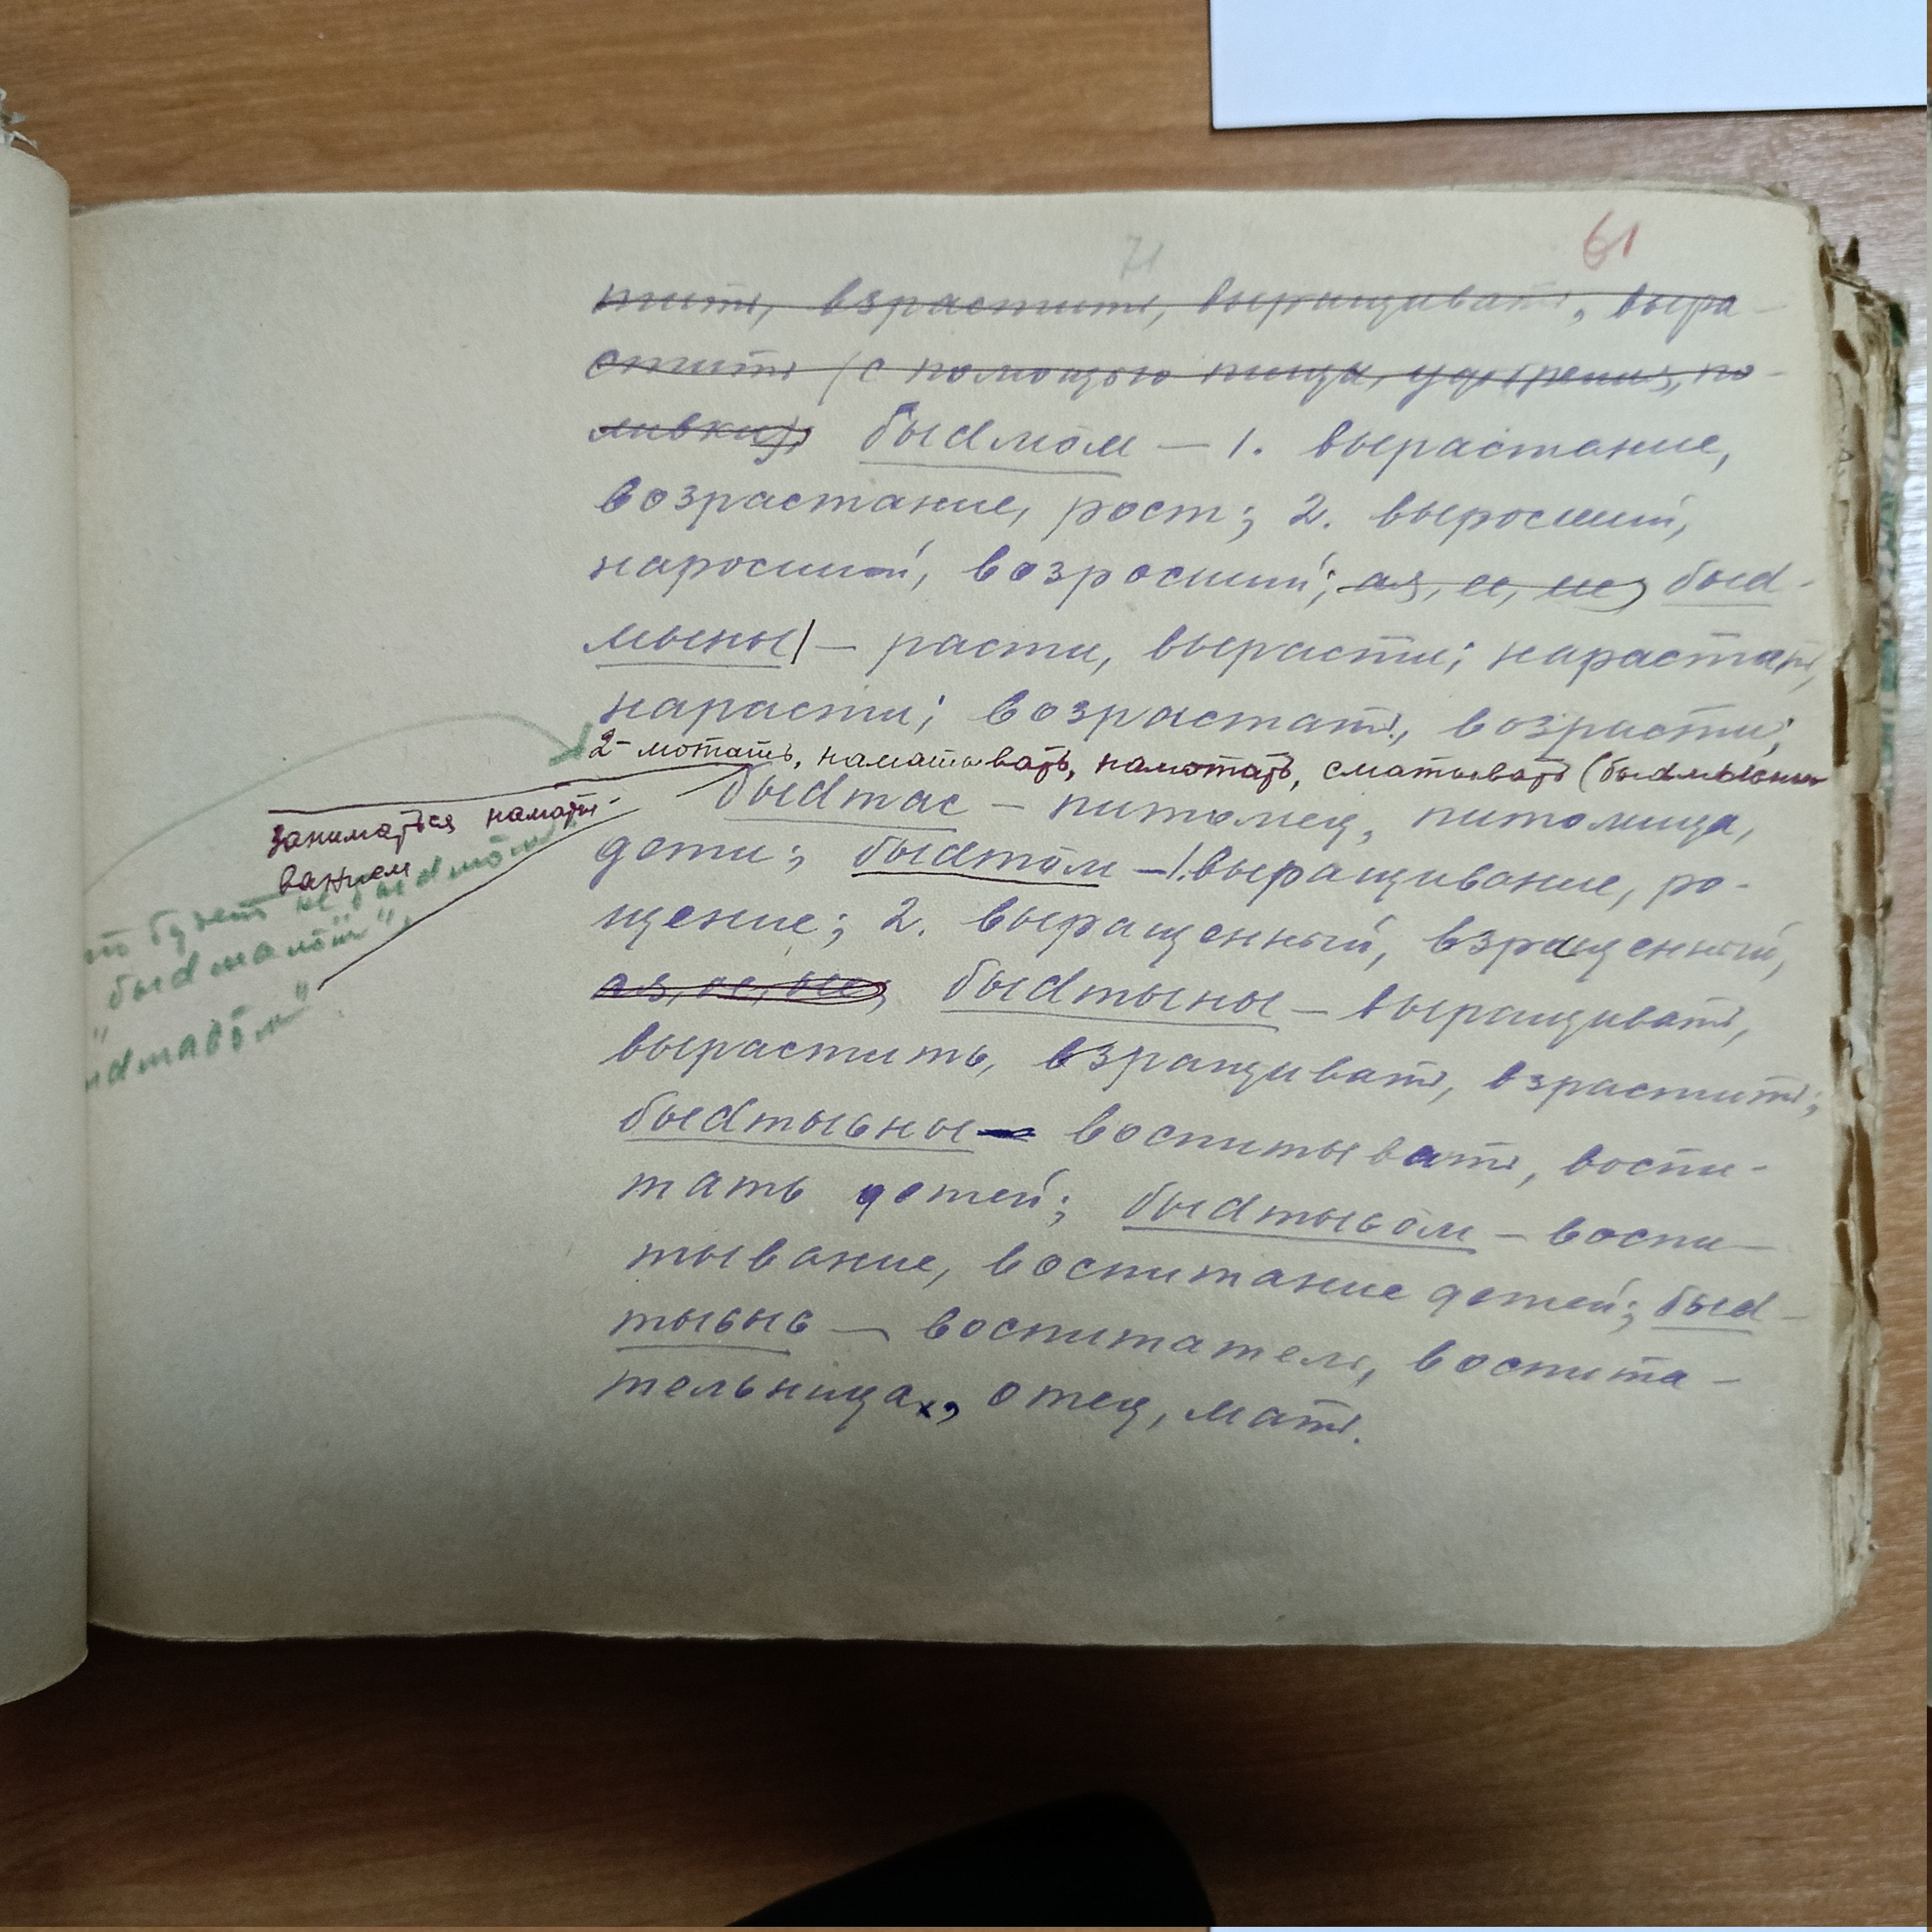 71
61
тить, взрастить, выращивать, выра-
стить (с помощью пищи, удобрения, по-
ливки);  быdмöм — 1. вырастание,
возрастание, рост; 2. выросший,
наросший, возросший; ая, ее, ие; быd-
мыны 1 — расти, вырасти; нарастать,
нарасти; возрастать, возрасти;
2- мотать, наматывать, намотать, сматывать (быdмыны
заниматься наматы-
ванием
быdтас — питомец, питомица,
дети; быdтöм — 1. выращивание, ро-
щение; 2. выращенный, взращенный,
ая, ее, ые; быdтыны — выращивать,
вырастить, взращивать, взрастить;
быdтысьны — воспитывать, воспи-
тать детей; быdтысьöм — воспи-
тывание, воспитание детей; быd-
тысьысь — воспитатель, воспита-
тельница, отец, мать.
будет не быdмöм